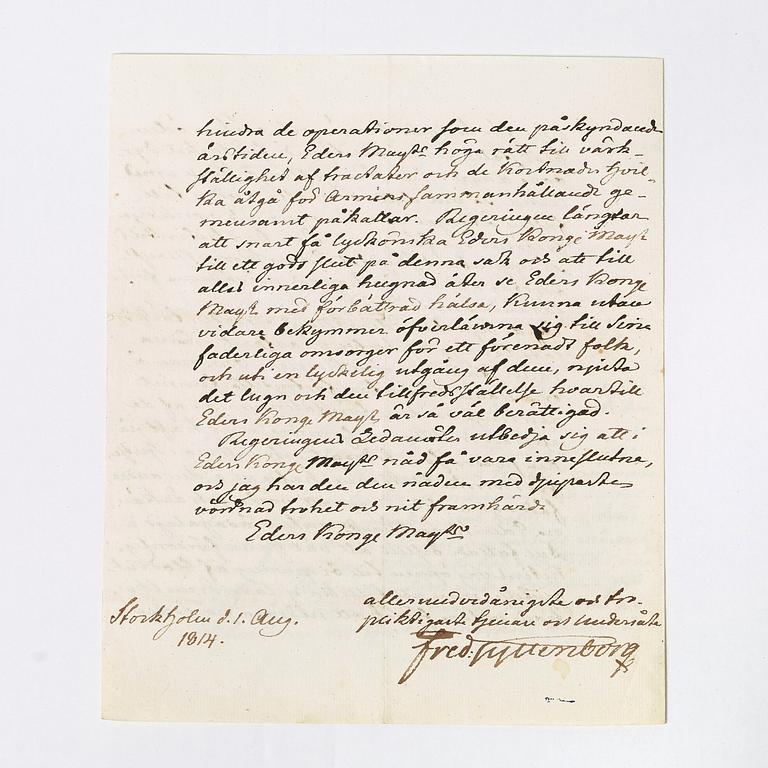 hindra de operationer som den påskyndande
årstiden, Eders Mayts höga rätt till värk-
ställighet af tractater och de kostnader hvil-
ka åtgå för Arméens sammanhållande ge-
mensamt påkallar. Regeringen längtar
att snart få lyckönska Eders Konge Mayt
till ett godt slut på denna sak och att till
allas innerliga hugnad åter se Eders Konge
Mayt med förbättrad hälsa, kunna utan
vidare bekymmer öfverlämna sig till sina
faderliga omsorger för ett förenadt folk,
och uti en lyckelig utgång af dem, njuta
det lugn och den tillfredsställelse hvartill
Eders Konge Mayt är så väl berättigad.
Regeringens Ledamöter utbedja sig att i
Eders Konge Mayts nåd få vara inneslutne,
och jag har den nåden med djupaste
vördnad trohet och nit framhärda
Eders Konge Mayts
allerunderdånigste och tro-
pliktigaste tjenare och undersåte
Stockholm d. 1. Aug.
1814.
Fred: Gyllenborg